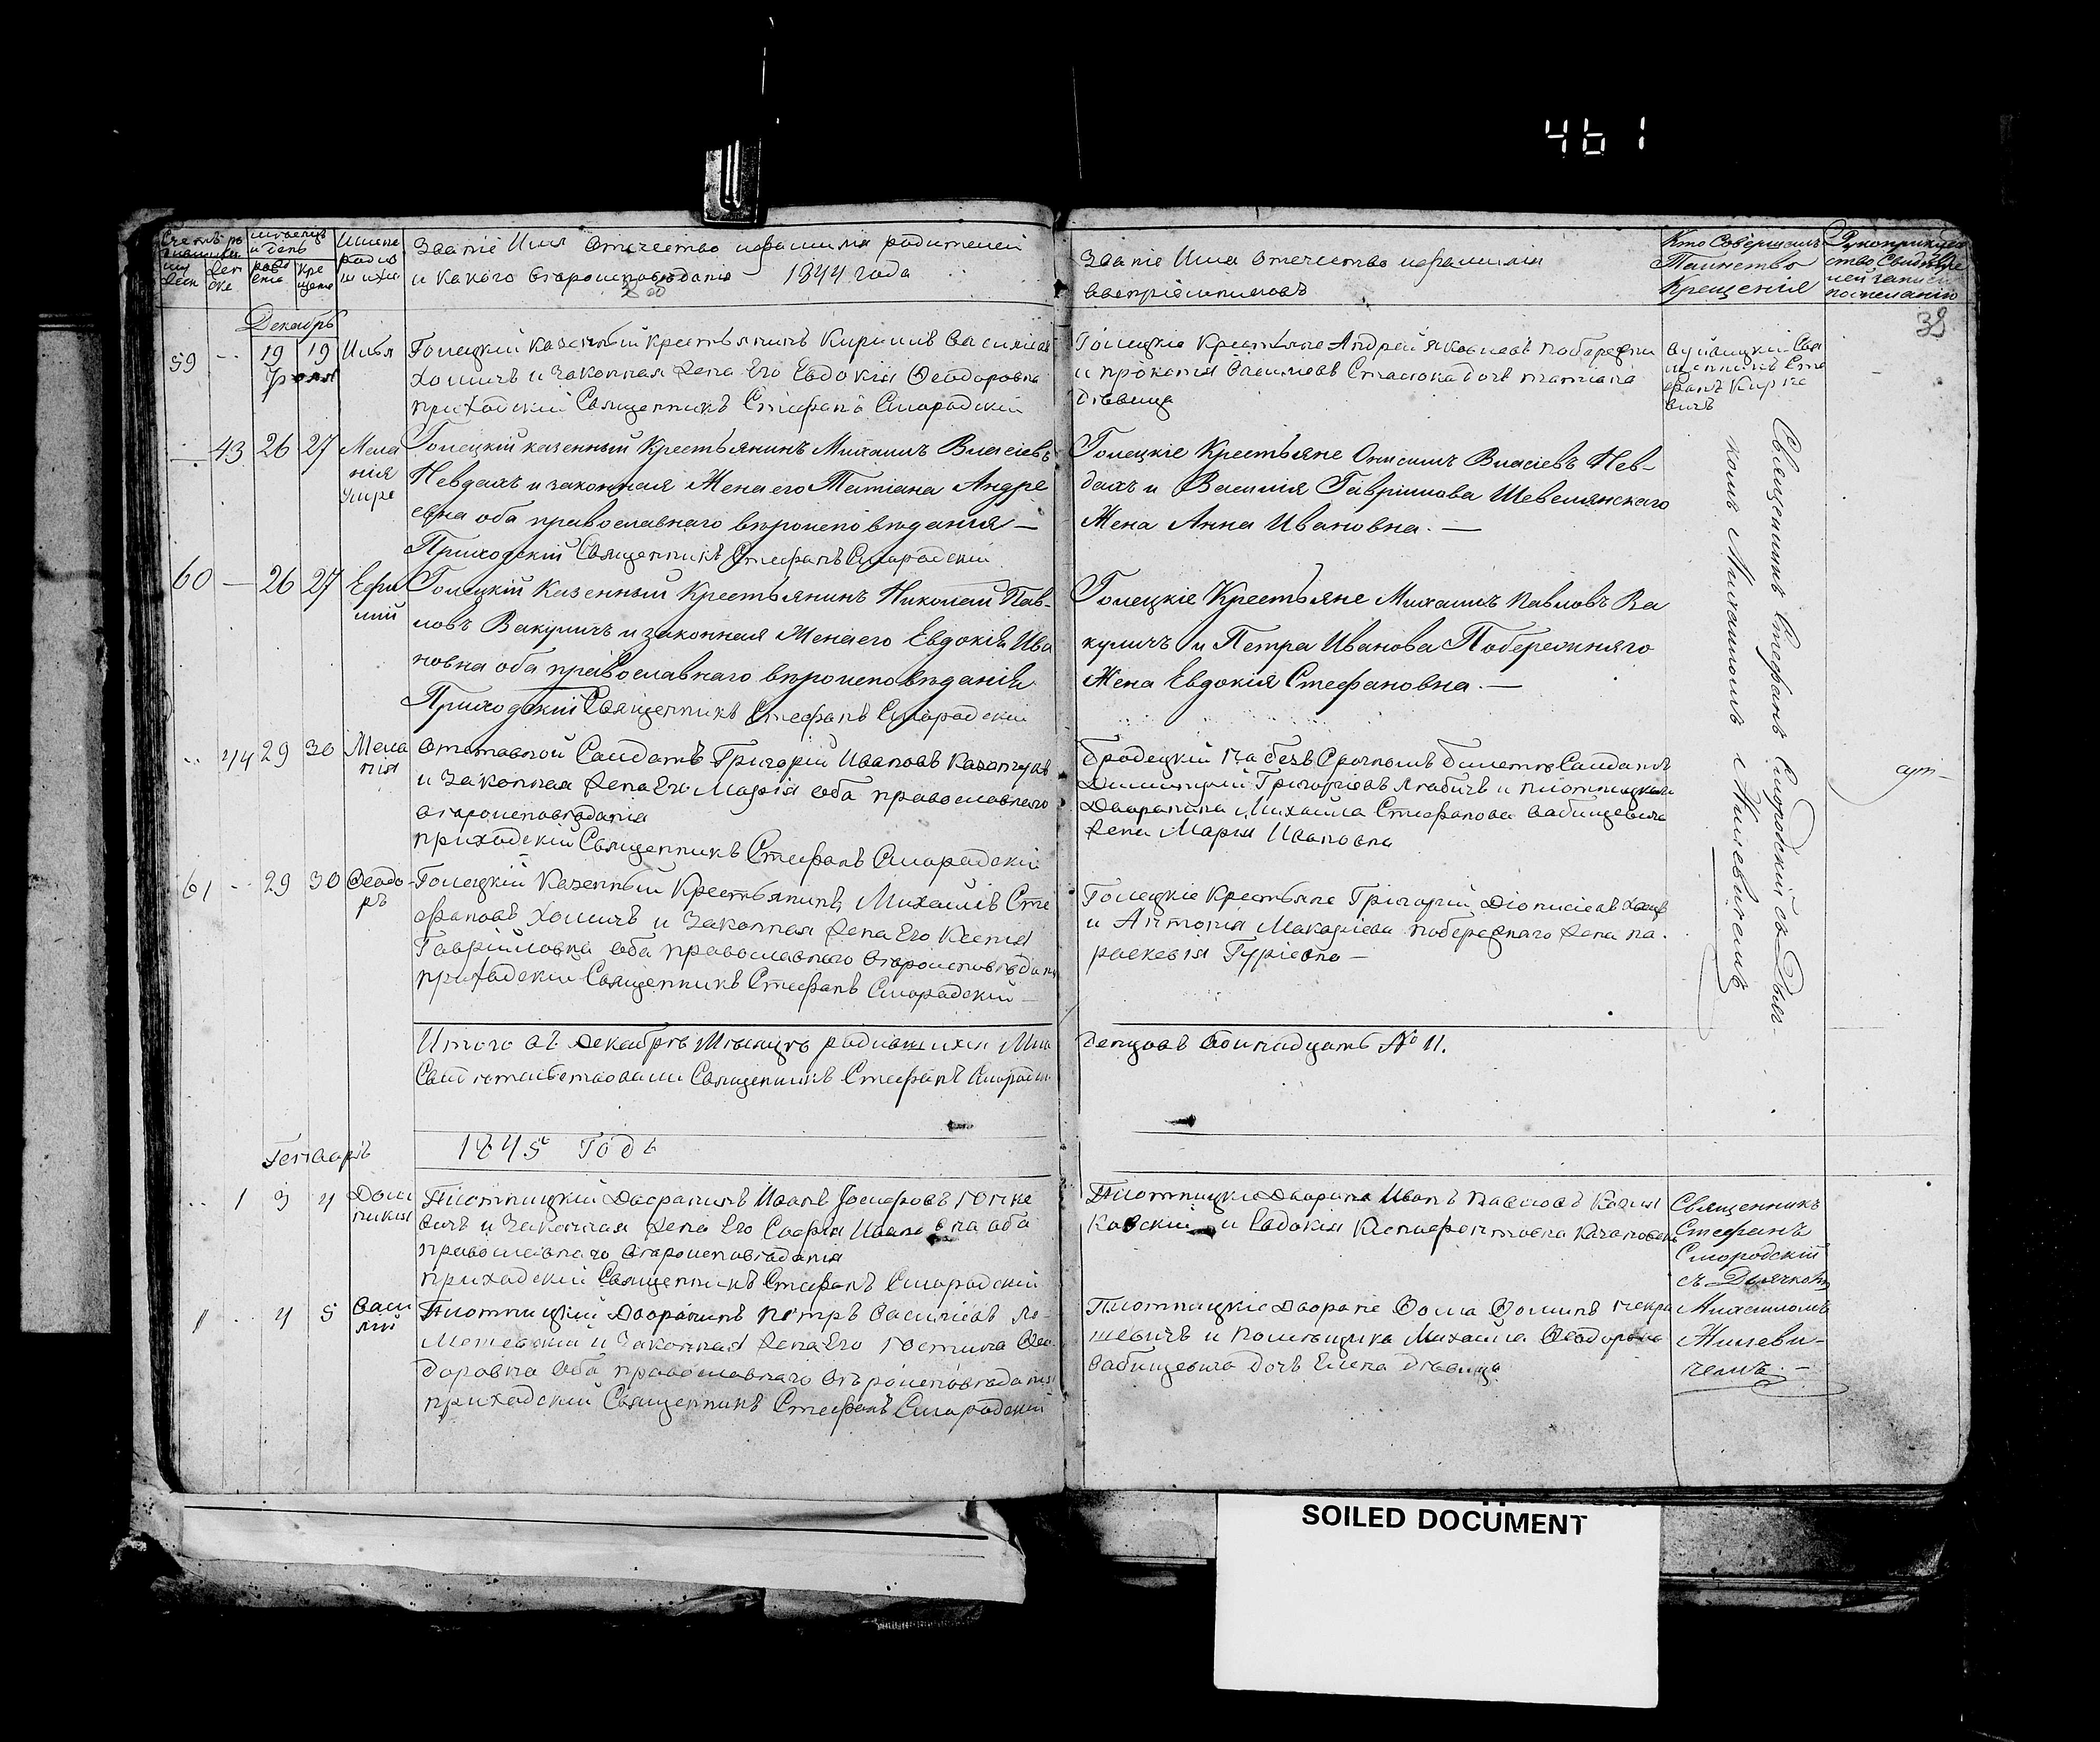 461
Счетъ ро
дившихся
муж
жен
ска
мѣсяцъ
и день
рож
енія
кре
щенія
Имена
родив
шихся
Званіе Имя Отечество и фамилія родителей
и какого вѣроисповѣданія 1844 года
Званіе Имя Отечество и фамилія
воспріемниковъ
Кто Совершалъ
Таинство
Крещенія
Рукоприкладс
ство Свидѣте
лей записи
по желанію
39
Декабрь
59 -- 19 19 Илья
Голецкій казенный крестьянинъ Кирилъ Василіевъ
Хомичъ и законная жена Его Евдокія Феодоровна
приходскій Священникъ Стефанъ Смородскій
Голецкіе Крестьяне Андрей Яковлевъ побережни
и прокопія Василіевъ Стасюка дочь татіана
дѣвица
Свя
щенникъ Сте
фанъ Кирке
вичъ
— 43 26 27 Мела
нія
умре
Голецкій казенный Крестьянинъ Михаилъ Власіевъ
Невдахъ и законная Жена его Татіана Андре
евна оба православнаго вѣроисповѣданія —
Приходскій Священникъ Стефанъ Смородскій
Голецкіе Крестьяне Онисимъ Власіевъ Нев-
дахъ и Василія Гавріилова Шевелянскаго
Жена Анна Ивановна. —
60 — 26 27 Ефи
мій
Голецкій Казенный Крестьянинъ Николай Пав-
ловъ Вакуличъ и законная Жена его Евдокія Ива
новна оба православнаго вѣроисповѣданія
Приходскій Священникъ Стефанъ Смородскій
Голецкіе Крестьяне Михаилъ Павловъ Ва
куличъ и Петра Иванова Побережняго
Жена Евдокія Стефановна. —
Священникъ Стефанъ Смородскій съ Дьяч-
комъ Михаиломъ Жилевичемъ
.. 44 29 30 Мела
нія
Отставной Салдатъ Григорій Ивановъ
и законная жена Его Марія оба православнаго
вѣроисповѣданія
приходскій Священникъ Стефанъ Смородскій
Бродецкій безъ Срочномъ билетѣ Салдатъ
Димитрій Григоріевъ и плотницкаго
Дворянина Михаила Стефанова Бабицевича
жена Марія Ивановна
61 -- 29 30 Феодо
ръ
Голецкій Казенный Крестьянинъ Михаилъ Сте
фановъ Хомичъ и законная жена Его Ксенія
Гавріиловна оба православнаго вѣроисповѣдан
приходскій Священникъ Стефанъ Смородскій —
Голецкіе Крестьяне Григорій Діонисіевъ Хомич
и Антонія Макаріева побережнаго жена па
раскевія Гуріевна —
Итого въ декабрѣ Мѣсяцѣ родившихся Мла
денцовъ Одинадцать № 11.
Свидѣтельствовали Священникъ Стефанъ Смородскі
Генваръ 1845 Годъ
.. 1 3 4 Доми
никія
Плотницкій Дворянинъ Иванъ Іосифовъ
вичъ и законная жена Его Софія Ивановна оба
православнаго вѣроисповѣданія
приходскій Священникъ Стефанъ Смородскій
Плотницкіе Дворяне Иванъ Павловъ
и Евдокія
Священникъ
Стефанъ
Смородскій
съ Дьячкомъ
Михаиломъ
Жилеви-
чемъ. —
1 . 4 5 Васи
лій
Плотницкій Дворянинъ Петръ Василіевъ
и законная жена Его Юстина Фео
доровна оба православнаго вѣроисповѣданія
приходскій Священникъ Стефанъ Смородскій
Плотницкіе Дворяне Фома Фоминъ
шевичъ и помѣщика Михаила Феодорова
Бабицевича дочь Елена дѣвица
SOILED DOCUMENT